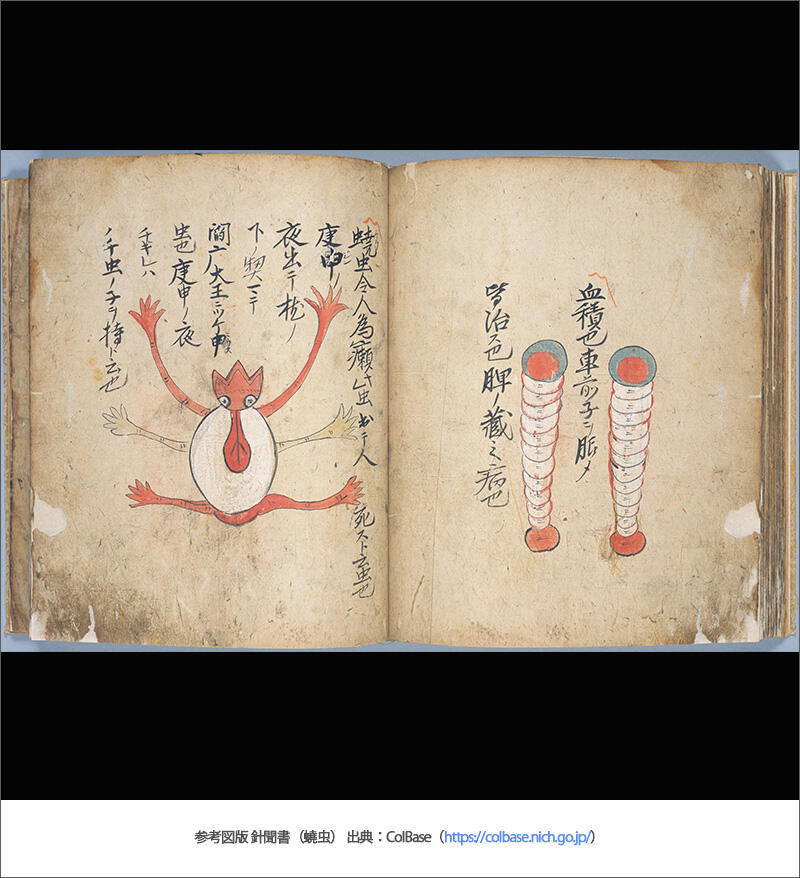 血積也車前子ヲ服メ
皆治ス也脾ノ蔵之病也
蟯虫令人為癩此虫出テ人
死スト云虫也
庚申ノ
夜出テ枕ノ
下ノ
閻广大王ニツケ申
虫也庚申ノ夜
ノ千虫ノ子ヲ持ト云也
参考図版 針聞書（蟯虫） 出典：ColBase（https://colbase.nich.go.jp/）